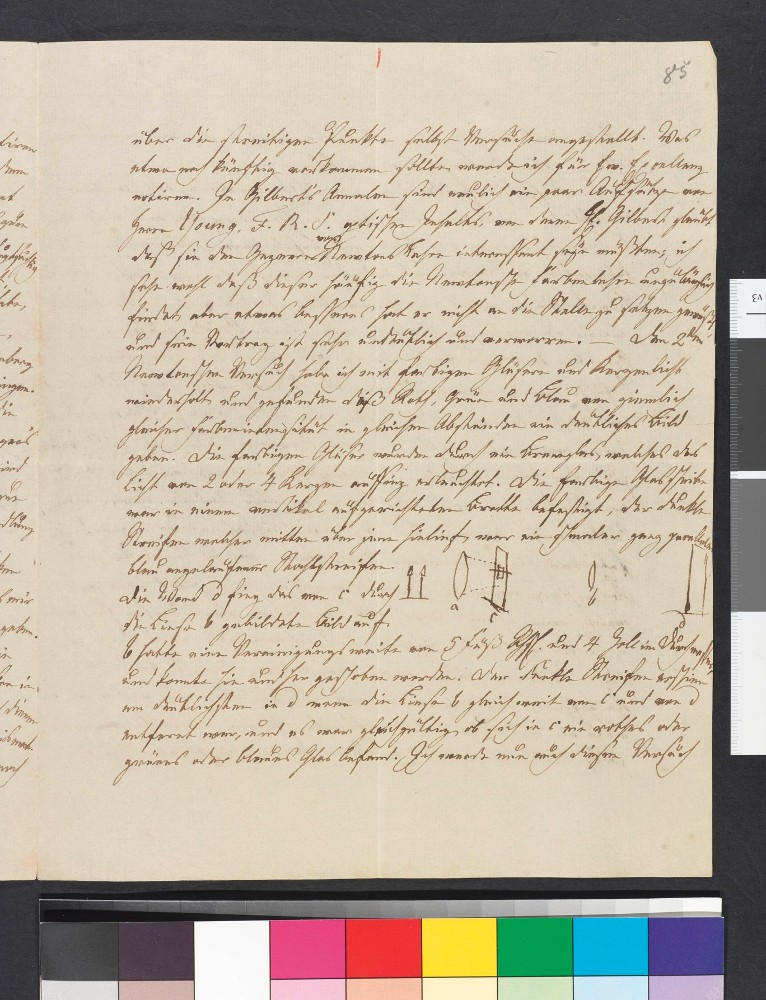 85
über die streitigen Punkte selbst Versuche angestellt. Was
etwa noch künftig vorkommen sollte werde ich für Ew. Excellenz
notiren. In Gilberts Annalen sind neulich ein paar Aufsätze von
Herrn Young, F. R. S. optischen Inhalts, von denen H. Gilbert glaubt
daß sie den Gegnern von Newtons Lehre interessant seyn müßten; ich
sehe wohl daß dieser häufig die Newtonsche Farbenlehre unzulänglich
findet, aber etwas besseres hat er nicht an die Stelle zu setzen gewußt
und sein Vortrag ist sehr undeutlich und verworren. — Den 2ten
Newtonschen Versuch habe ich mit farbigen Gläsern und Kerzenlicht
wiederholt und gefunden daß Roth, Grün und Blau von ziemlich
gleicher Farbenintensität in gleichen Abständen ein deutliches Bild
geben. Die farbigen Gläser wurden durch ein Brennglas, welches das
Licht von 2 oder 4 Kerzen auffing erleuchtet. Die farbige Glasscheibe
war in einem vertikal aufgerichteten Brette befestigt, der dunkle
Streifen welcher mitten über jene hinlief, war ein schmaler ganz
blau angelaufener Stahlstreifen.
Die Wand d fing das von c durch
die Linse b gebildete Bild auf.
a c b
b hatte eine Vereinigungsweite von 5 Fuß und 4 Zoll im Durchmesser,
und konnte hin und her geschoben werden. Der dunkle Streifen erschien
am deutlichsten in d wenn die Linse b gleichweit von c und von d
entfernt war, und es war gleichgültig, ob sich in c ein rothes oder
grünes oder blaues Glas befand. Ich werde nun auch diesen Versuch